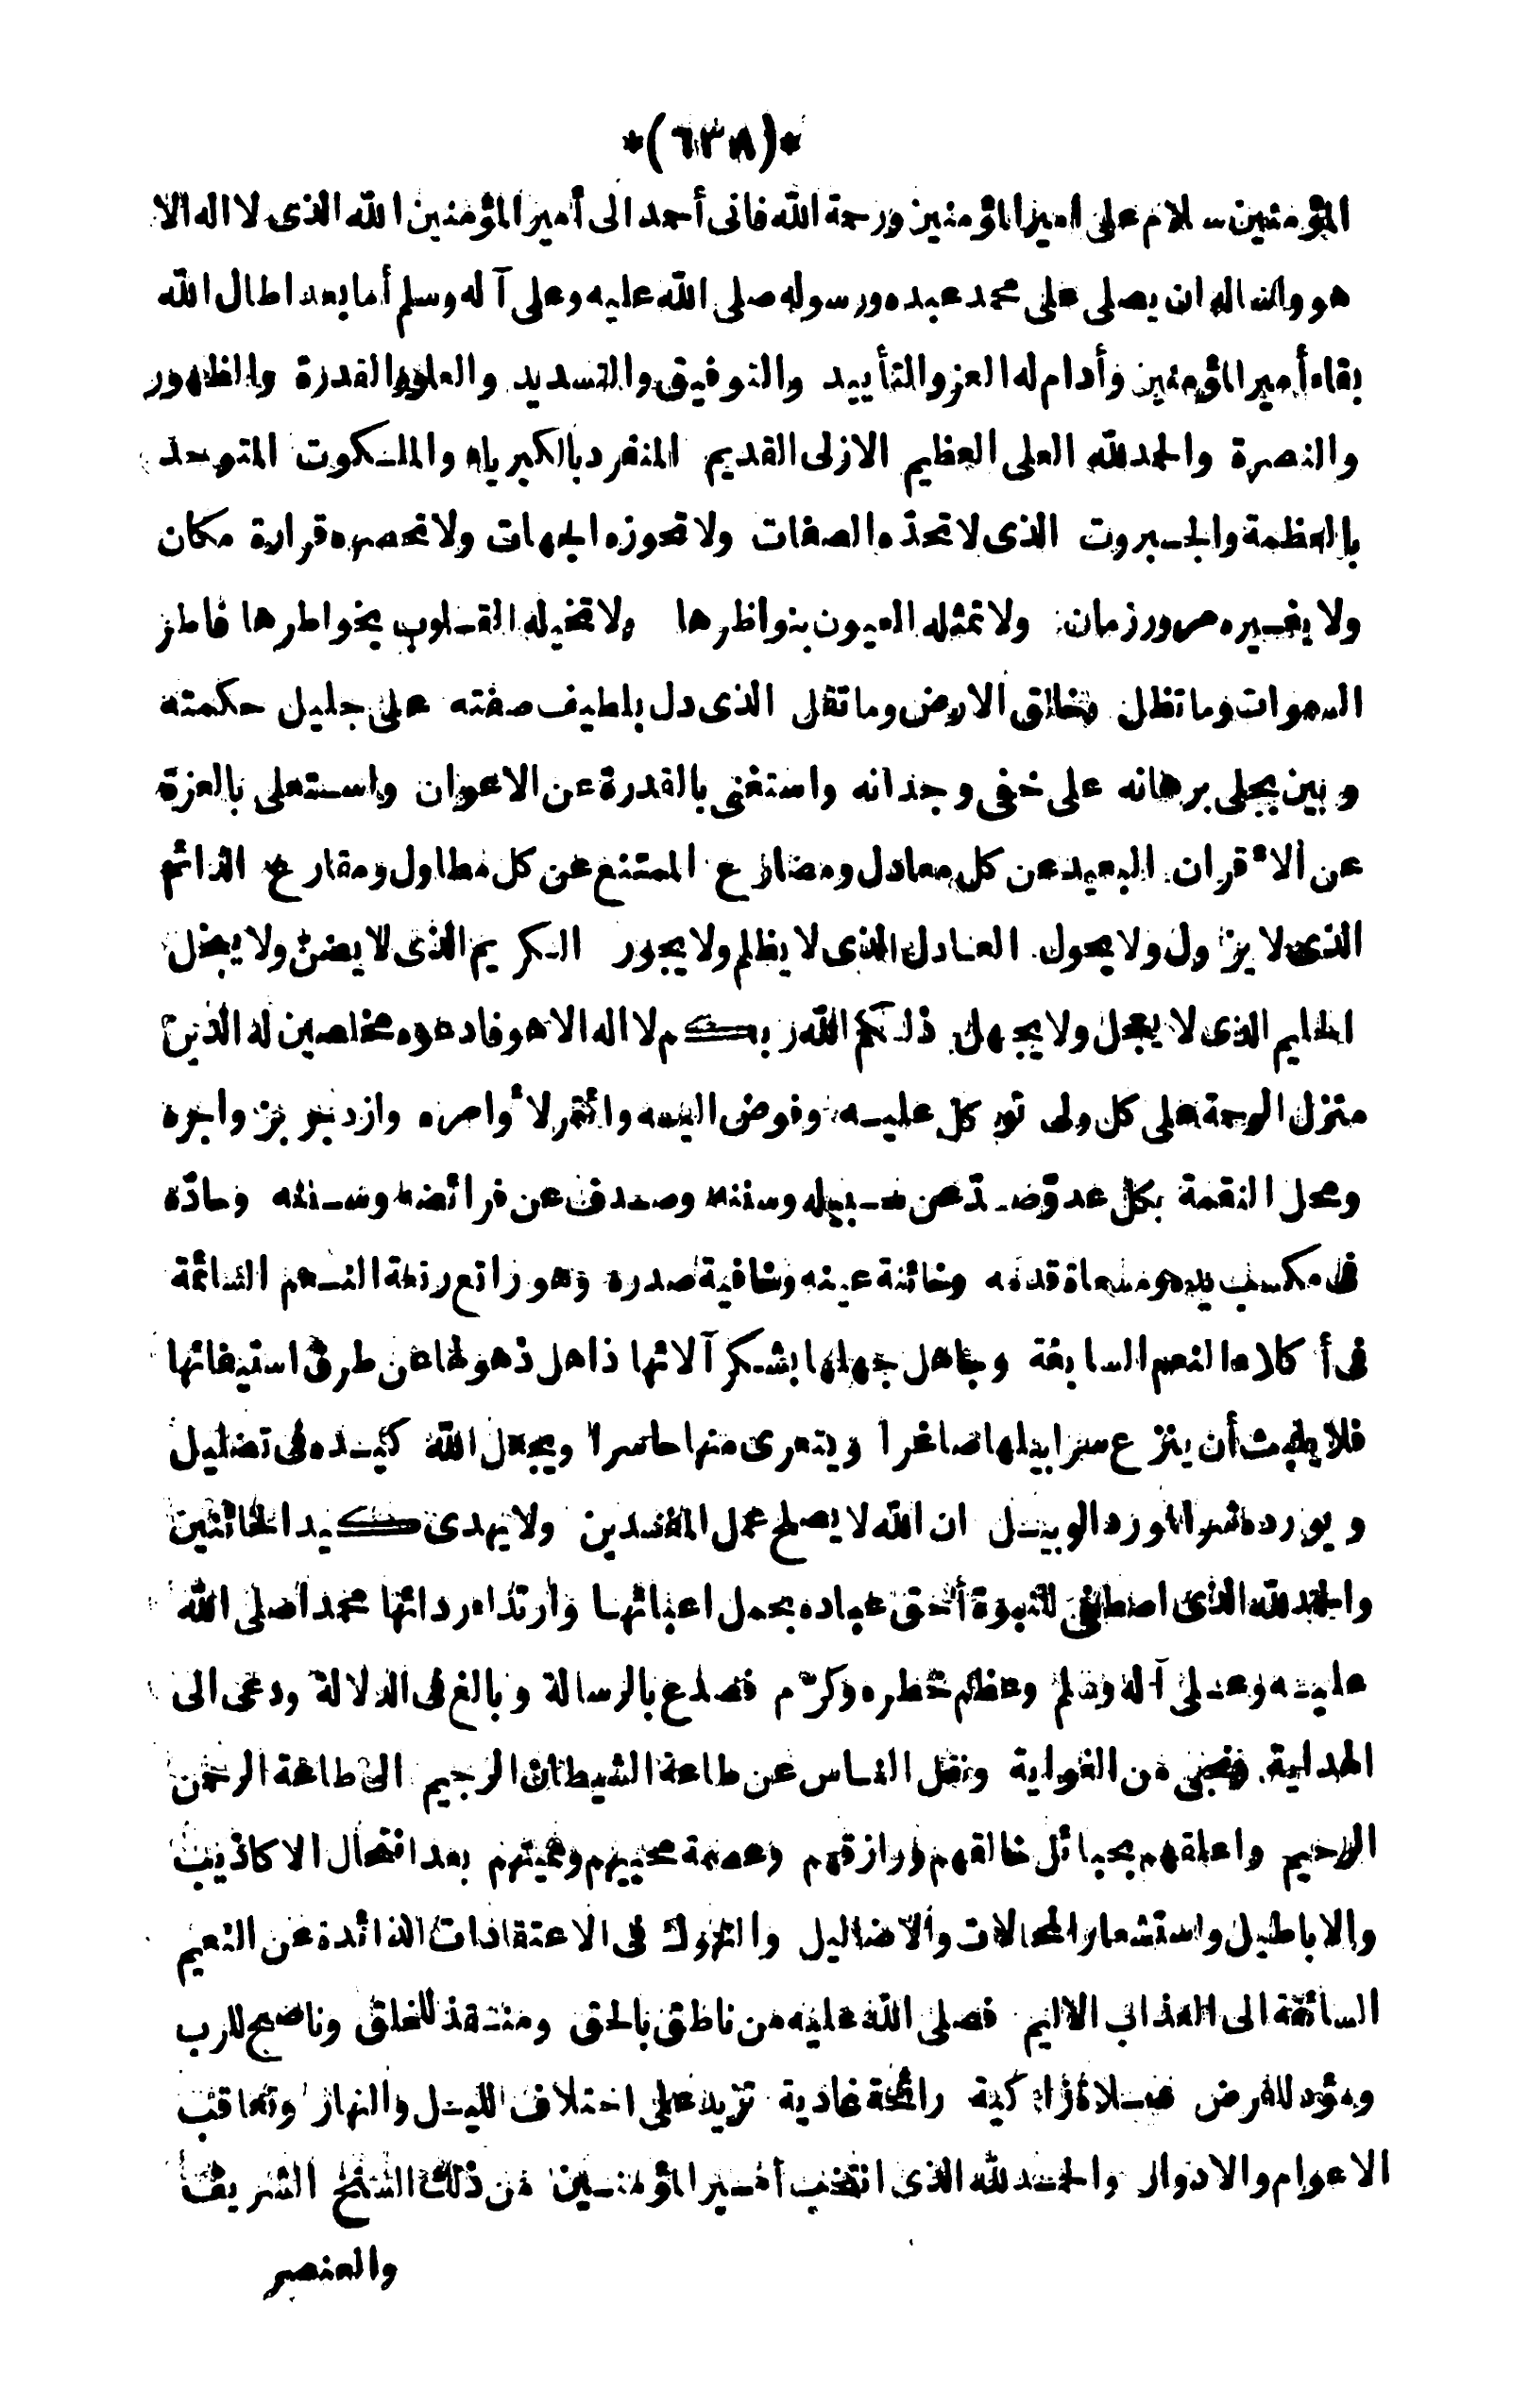 *(٦٣٨)*
المؤمنين سلام على امير المؤمنين ورحمة الله فانى أحمد الى أمير المؤمنين الله الذى لا اله الا
هو واساله ان يصلى على محمد عبده ورسوله صلى الله عليه وعلى آله وسلم أما بعد اطال الله
بقاء أمير المؤمنين وأدام له العز والتأييد والتوفيق والتسديد والعلو والقدرة والظهور
والنصرة والحمد لله العلى العظيم الازلى القديم المنفرد بالكبرياء والملكوت المتوحد
بالعظمة والجبروت الذى لا تحدّه الصفات ولا تحوزه الجهات ولا تحصره قرارة مكان
ولا يغيره مرور زمان ولا تمثله العيون بنواظرها ولا تخيله القلوب بخواطرها فاطر
السموات وما تظل وخالق الارض وما تقل الذى دل بلطيف صفته على جليل حكمته
وبين بجلى برهانه على خفى وجدانه واستغنى بالقدرة عن الاعوان واستعلى بالعزة
عن الاقران البعيد عن كل معادل ومضارع الممتنع عن كل مطاول ومقارع الدائم
الذى لا يزول ولا يحول العادل الذى لا يظلم ولا يجور الكريم الذى لا يضنّ ولا يبخل
الحليم الذى لا يعجل ولا يجهل ذلكم الله ربكم لا اله الا هو فادعوه مخلصين له الدين
منزل الرحمة على كل ولى توكل عليه وفوض اليه وائتمر لأوامره وازدجر بزواجره
ومحل النقمة بكل عدوّ صدّ عن سبيله وسننه وصدف عن فرائضه وسننه وحادّه
فى مكسب يده ومسعاة قدمه وخائنة عينه وخافية صدره وهو راتع رتعة النعم السائمة
فى أكلاء النعم السابغة وجاهل جهلها بشكر آلائها ذاهل ذهولها عن طرق استيفائها
فلا يلبث أن ينزع سرابيلها صاغرا ويتعرى منها حاسرا ويجعل الله كيده فى تضليل
ويورده شر المورد الوبيل ان الله لا يصلح عمل المفسدين ولا يهدى كيد الخائنين
والحمد لله الذى اصطفى للنبوة أحق عباده بحمل اعبائها وارتداء ردائها محمدا صلى الله
عليه وعلى آله وسلم وعظم خطره وكرّم فصدع بالرسالة وبالغ فى الدلالة ودعى الى
الهداية ونجى من الغواية ونقل الناس عن طاعة الشيطان الرجيم الى طاعة الرحمن
الرحيم واعلقهم بحبائل خالقهم ورازقهم وعصمة محييهم ومميتهم بعد انتحال الاكاذيب
والاباطيل واستشعار المحالات والاضاليل والتهوك فى الاعتقادات الذائدة عن النعيم
السائقة الى العذاب الاليم فصلى الله عليه من ناطق بالحق ومنتقذ للخلق وناصح للرب
ومؤد للفرض صلاة زاكية رائحة غادية تزيد على اختلاف الليل والنهار وتعاقب
الاعوام والادوار والحمد لله الذى انتخب أمير المؤمنين من ذلك السنخ الشريف
والعنصر